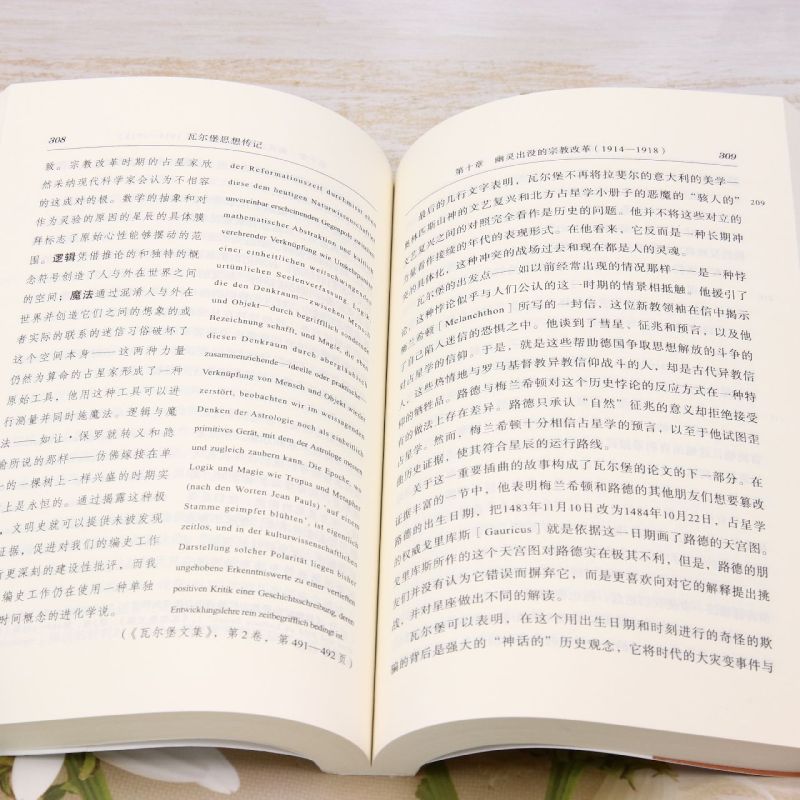 308
瓦尔堡思想传记
致。宗教改革时期的占星家欣
然采纳现代科学家会认为不相容
的这或对的极。数学的抽象和对
作为灵验的原因的星辰的具体膜
拜标志了原始心性能够摆动的范
围。逻辑凭借推论的和独特的概
念符号创造了人与外在世界之间
的空间；魔法通过混淆人与外在
世界并创造它们之间的想象的或
者实际的联系的迷信习俗破坏了
这个空间本身——这两种力量
仍然为算命的占星家形成了一种
原始工具，他用这种工具可以进
行测量并同时施魔法。逻辑与魔
法——如让·保罗就转义和隐
所说的那样——仿佛嫁接在单
一的一棵树上一样兴盛的时期实
上是永恒的。通过揭露这种极
，文明史就可以提供未被发现
证据，促进对我们的编史工作
更深刻的建设性批评，而我
编史工作仍在使用一种单独
时间概念的进化学说。
der Reformationszeit durchmisst eben
diese dem heutigen Naturwissenschaftler
unvereinbar erscheinenden Gegenpole zwischen
mathematischer Abstraktion und kultlich
verehrender Verknüpfung wie Umkehrpunkte
einer einheitlichen weitschwingenden
urtümlichen Seelenverfassung. Logik,
die den Denkraum—zwischen Mensch
und Objekt—durch begrifflich sondernde
Bezeichnung schafft, und Magie, die eben
diesen Denkraum durch abergläubisch
zusammenziehende—ideelle oder praktische—
Verknüpfung von Mensch und Objekt wieder
zerstört, beobachten wir im weissagenden
Denken der Astrologie noch als einheitlich
primitives Gerät, mit dem der Astrologe messen
und zugleich zaubern kann. Die Epoche, wo
Logik und Magie wie Tropus und Metapher
(nach den Worten Jean Pauls) 'auf einem
Stamme geimpfet blühten', ist eigentlich
zeitlos, und in der kulturwissenschaftlichen
Darstellung solcher Polarität liegen bisher
ungehobene Erkenntniswerte zu einer vertieften
positiven Kritik einer Geschichtsschreibung, deren
Entwicklungslehre rein zeitbegrifflich bedingt ist.
(《瓦尔堡文集》，第2卷，第491—492页)
第十章 幽灵出没的宗教改革(1914—1918)
309
最后的几行文字表明，瓦尔堡不再将拉斐尔的意大利的美学——
奥林匹斯山神的文艺复兴和北方占星学小册子的恶魔的“骇人的”
209
文艺复兴之间的对照完全看作是历史的问题。他并不将这些对立的
力量看作接续的年代的表现形式。在他看来，它反而是一种长期冲
突的具体化，这种冲突的战场过去和现在都是人的灵魂。
瓦尔堡的出发点——如以前经常出现的情况那样——是一种悖
论，这种悖论似乎与人们公认的这一时期的情景相抵触。他援引了
梅兰希顿［Melanchthon］所写的一封信，这位新教领袖在信中揭示
了自己陷入迷信的恐惧之中。他谈到了彗星、征兆和预言，以及他
对占星学的信仰。于是，就是这些帮助德国争取思想解放的斗争的
人，这些热情地与罗马基督教异教信仰战斗的人，却是古代异教信
仰的牺牲品。路德与梅兰希顿对这个历史悖论的反应方式在一种特
有的做法上存在差异。路德只承认“自然”征兆的意义和拒绝接受
占星学。然而，梅兰希顿十分相信占星学的预言，以至于他试图歪
曲历史证据，使其符合星辰的运行路线。
关于这一重要插曲的故事构成了瓦尔堡的论文的下一部分。在
证据丰富的一节中，他表明梅兰希顿和路德的其他朋友们想要篡改
路德的出生日期，把1483年11月10日改为1484年10月22日，占星学
的权威戈里库斯［Gauricus］就是依据这一日期画了路德的天宫图。
戈里库斯所作的这个天宫图对路德实在极其不利，但是，路德的朋
友们并没有认为它错误而摒弃它，而是更喜欢向对它的解释提出挑
战，并对星座做出不同的解读。
瓦尔堡可以表明，在这个用出生日期和时刻进行的奇怪的欺
骗的背后是强大的“神话的”历史观念，它将时代的大灾变事件与